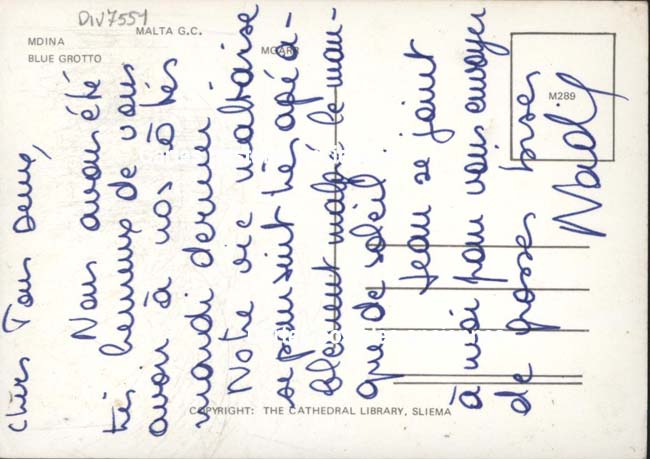 DIV7551
MALTA G.C.
MDINA
BLUE GROTTO
MGARR
M289
Chers Tous Deux,
Nous avons été
très heureux de vous
avoir à nos côtés
mardi dernier
Notre vie maltaise
se poursuit très agréa-
blement malgré le man-
que de soleil
Jean se joint
à moi pour vous envoyer
de grosses bises
COPYRIGHT: THE CATHEDRAL LIBRARY, SLIEMA